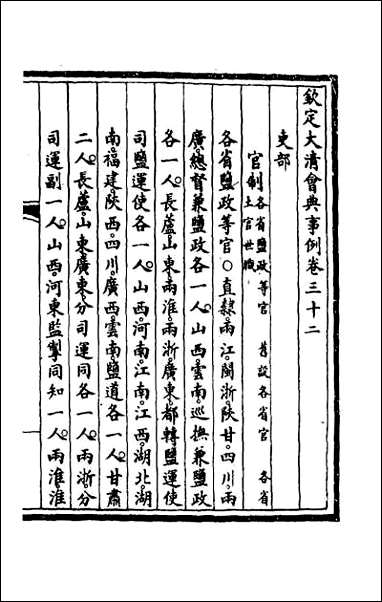 欽定大清會典事例卷三十二
吏部
官制各省鹽政等官 舊設各省官 各省土官世職
各省鹽政等官○直隸兩江閩浙陝甘四川兩
廣總督兼鹽政各一人山西雲南巡撫兼鹽政
各一人長蘆山東兩淮兩浙廣東都轉鹽運使
司鹽運使各一人山西河南江南江西湖北湖
南福建陝西四川廣西雲南鹽道各一人甘肅
二人長蘆山東廣東分司運同各一人兩浙分
司運副一人山西河東監掣同知一人兩淮淮